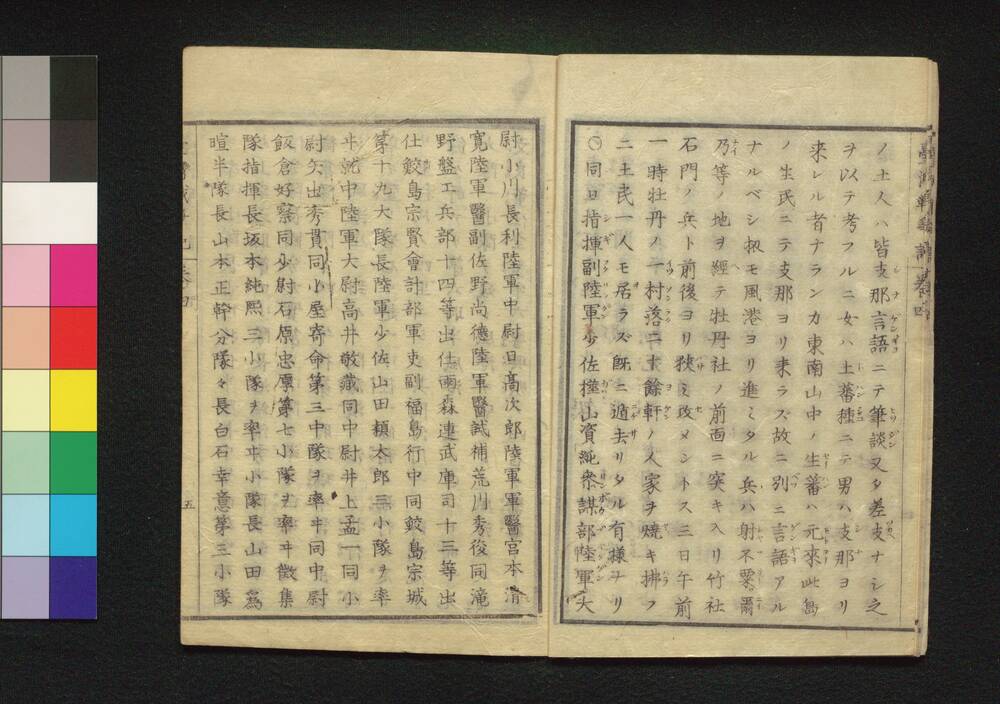 ノ土人ハ皆支那言語ニテ筆談又タ差支ナシ之
ヲ以テ考フルニ女ハ土蕃種ニテ男ハ支那ヨリ
来レル者ナランカ東南山中ノ生蕃ハ元來此島
ノ生民ニテ支那ヨリ来ラズ故ニ別ニ言語アル
ナルベシ扨モ風港ヨリ進ミタル兵ハ射不霎爾
乃等ノ地ヲ經テ牡丹社ノ前面ニ突キ入リ竹社
石門ノ兵ト前後ヨリ狹ミ攻メントス三日午前
一時牡丹ノ一村落二十餘軒ノ人家ヲ燒キ拂フ
ニ土民一人モ居ラズ既ニ遁去リタル有様ナリ
〇同日指揮副陸軍少佐樺山資純衆謀部陸軍大
尉小川長利陸軍中尉田髙次郎陸軍軍醫宮本清
寛陸軍醫副佐野尚德陸軍醫試補荒川秀俊同滝
野盤工兵部十四等出仕雨森連武庫司十三等出
仕鮫島宗賢會計部軍吏副福島行中同鮫島宗城
第十九大隊長陸軍少佐山田穎太郎三小隊ヲ率
ヰ就中陸軍大尉高井敬藏同中尉井上孟一同小
尉矢出秀貫同小屋寄命第三中隊ヲ率ヰ同中尉
飯倉好察同少尉石原忠厚第七小隊ヲ率ヰ徴集
隊指揮長坂本純熙三小隊ヲ率ヰ小隊長山田爲
暄半隊長山本正幹分隊々長白石幸意第三小隊
五